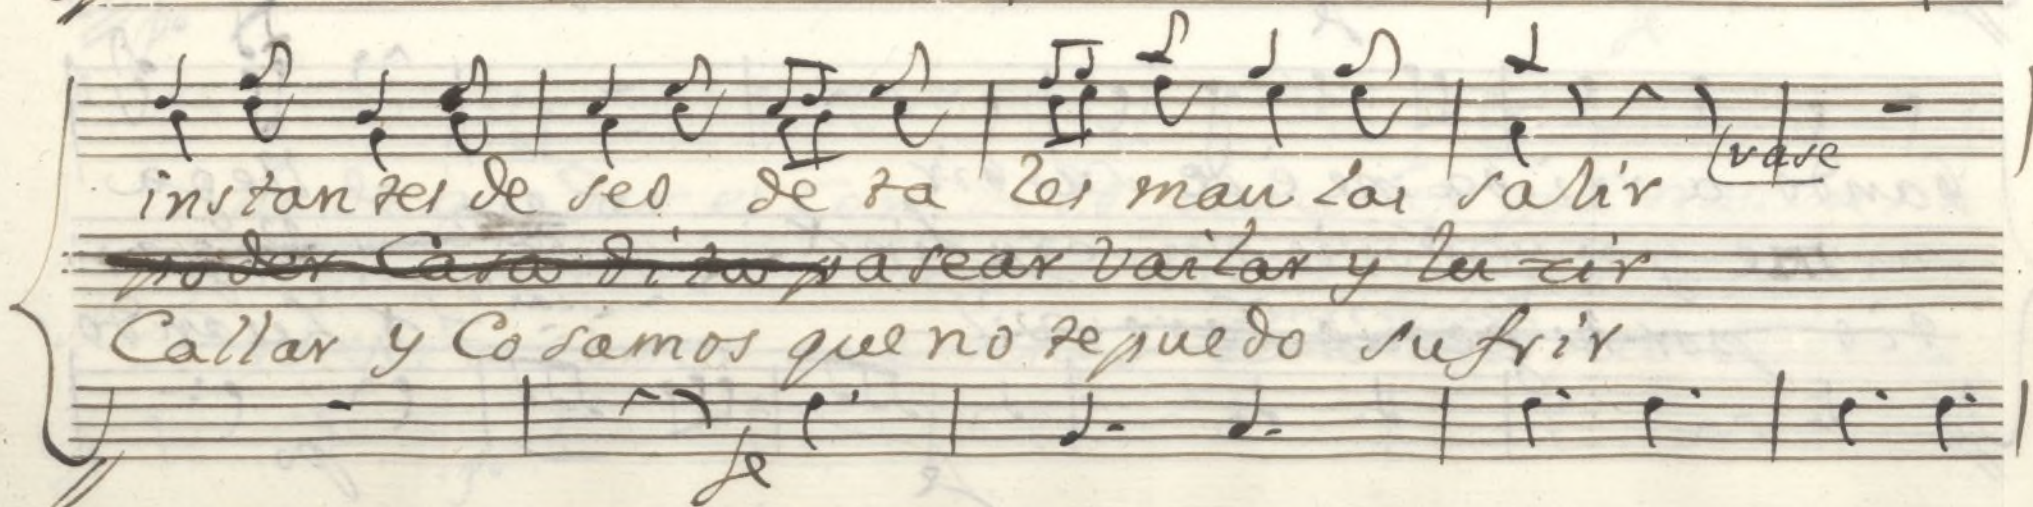 (vase
instantes deseo de tales maulas salir
poder Casadita pasear vailar y lucir
Callar y Cosamos que no te puedo sufrir
fe